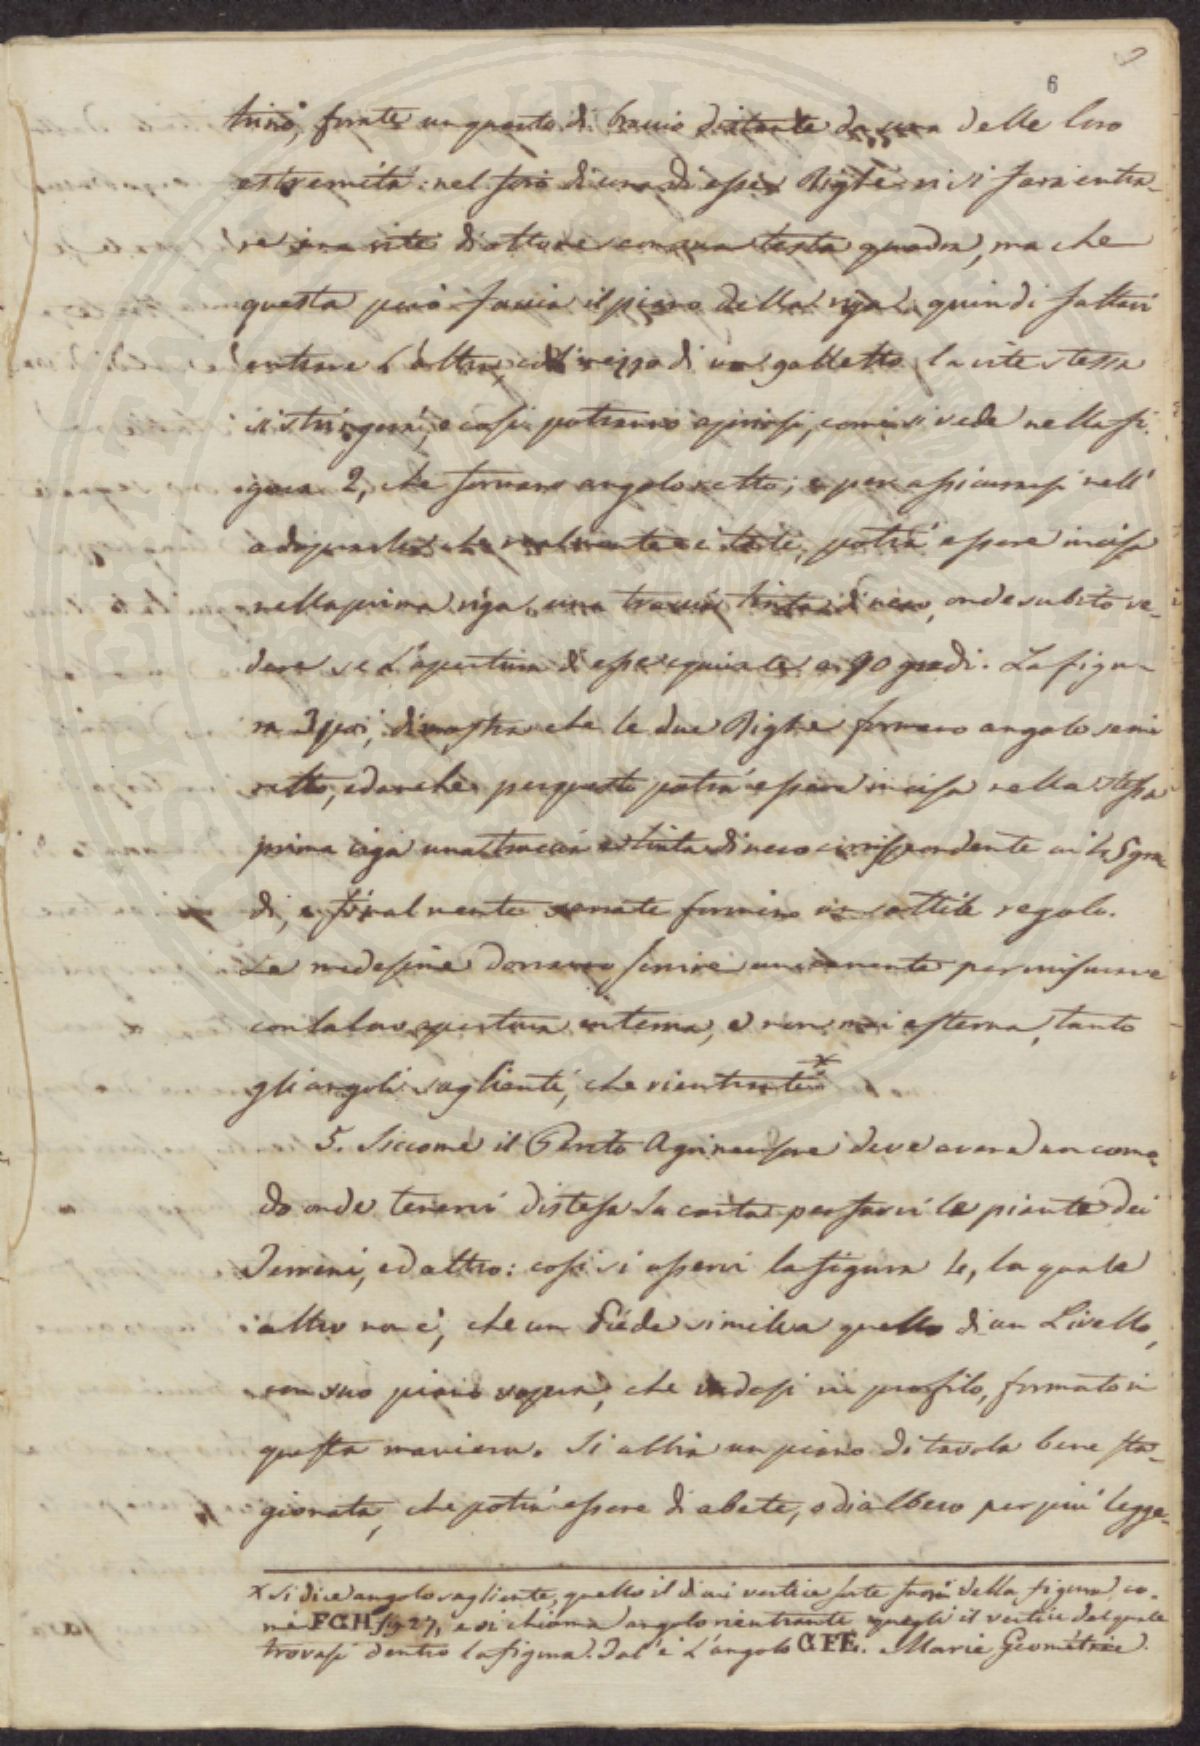 6
trino, forate un quarto di braccio distante da una delle loro
estremità: nel foro di una di esse Righe vi si farà entra-
re una vite di ottone con una testa quadra, ma che
questa però faccia il piano della riga, quindi fattavi
entrare l'altra, col mezzo di un galletto la vite stessa
si stringerà, e così potranno aprirsi, come si vede nella fi-
gura 2, che formano angolo retto; e per assicurarsi nell'
adoprarle che realmente è tale, potrà essere incisa
nella prima riga una traccia tinta di nero, onde subito ve-
dere se l'apertura di esse equivale a 90 gradi. La figu-
ra 3 poi, dimostra che le due Righe formano angolo semi
retto, ed anche per questo potrà essere incisa nella stessa
prima riga una traccia tinta di nero corrispondente ai 45 gra-
di, e finalmente serrate formino un sottile regolo.
Le medesime dovranno servire unicamente per misurare
con la loro apertura interna, e non mai esterna, tanto
gli angoli saglienti, che rientranti *
5. Siccome il Perito Agrimensore deve avere un como-
do onde tenervi distesa la carta per farvi le piante dei
Terreni, ed altro: così si osservi la figura 4, la quale
altro non è, che un Piede simile a quello di un Livello,
con suo piano sopra, che vedesi in profilo, formato in
questa maniera. Si abbia un piano di tavola bene sta-
gionata, che potrà essere di abete, o di albero per più legge-
* Si dice angolo sagliente, quello il di cui vertice sorte fuori della figura co-
me FGH fig 27, e si chiama angolo rientrante quegli il vertice del quale
trovasi dentro la figura. Tal'è L'angolo GFE. Marie Geométrie.